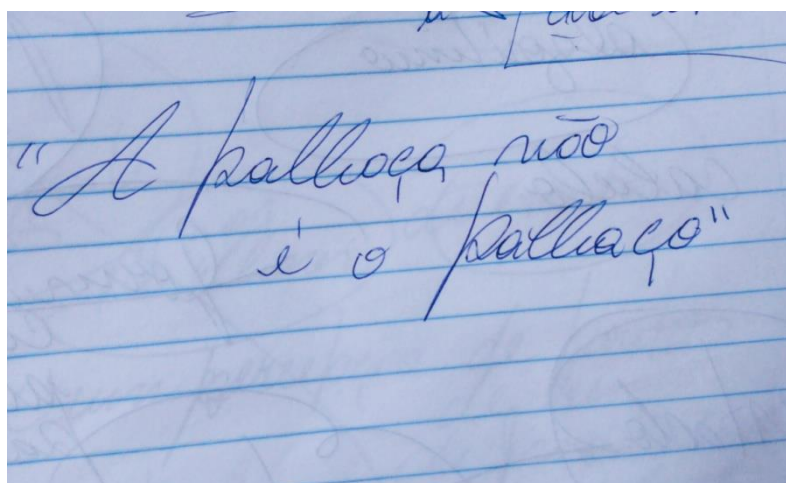 "A palhaça não
é o palhaço"